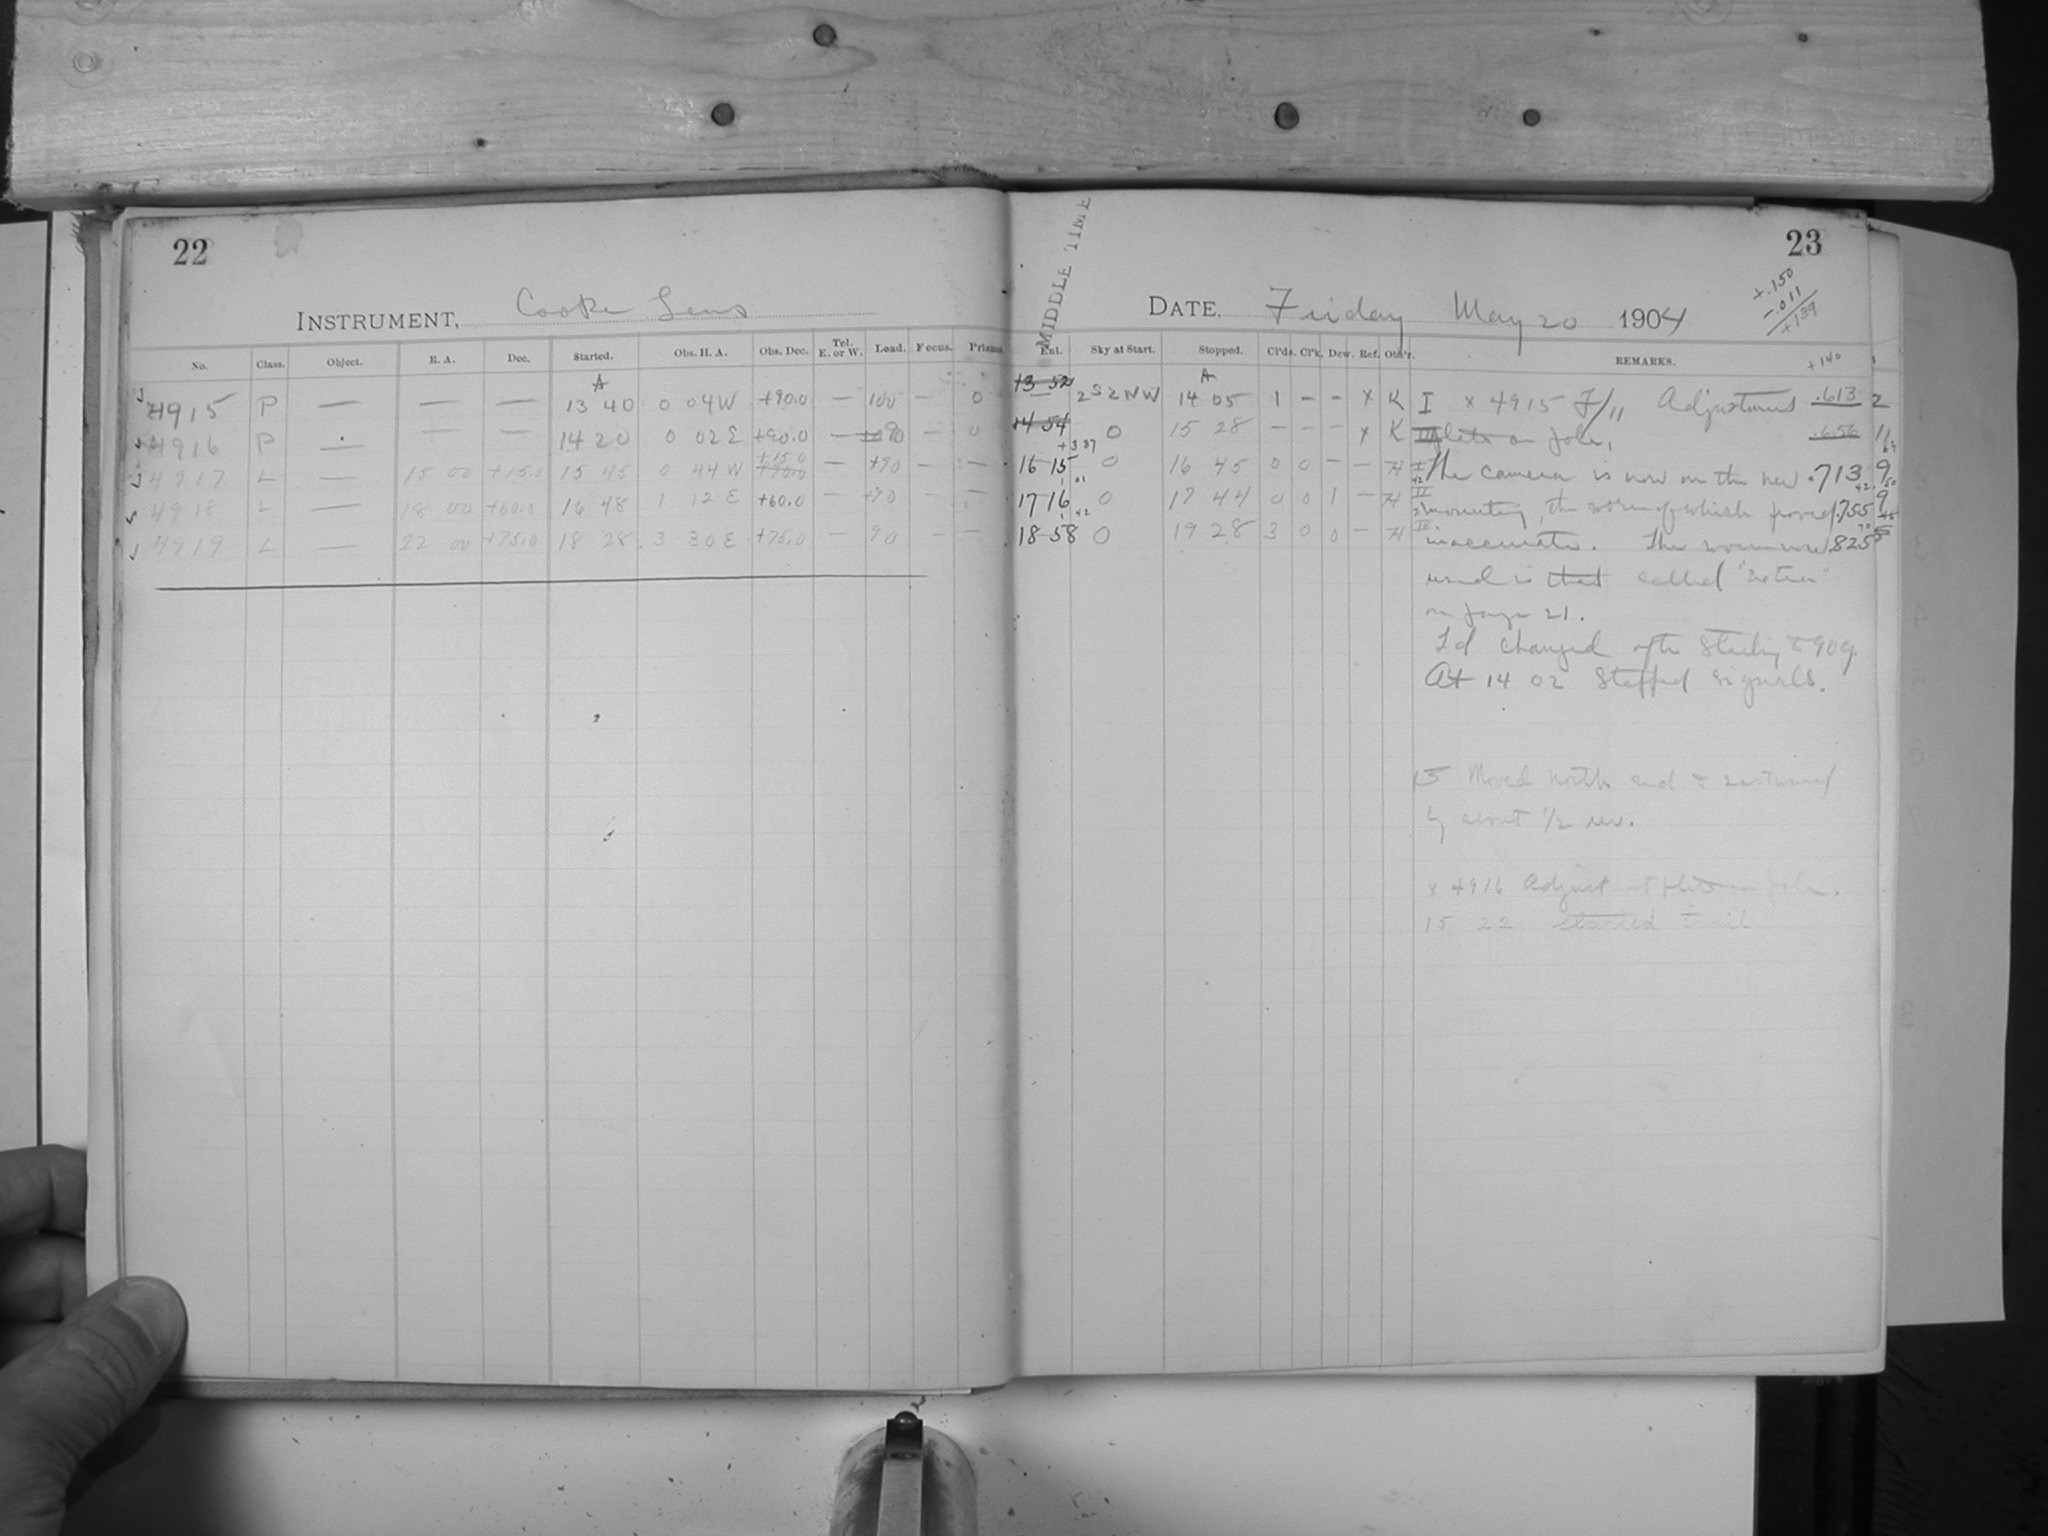 22
INSTRUMENT, Cooke Lens
No. Class. Object. R. A. Dec. Started. Obs. H. A. Obs. Dec. Tel. E. or W. Load. Focus. Prisms
A
4915 P — — — 13 40 0 04 W +90.0 — 100 — 0
4916 P — — — 14 20 0 02 E +90.0 — 90 — 0
+15.0
4917 L — 15 00 +15.0 15 45 0 44 W +90.0 — +90 — —
4918 L — 18 00 +60.0 16 48 1 12 E +60.0 — +90 — —
4919 L — 22 00 +75.0 18 28 3 30 E +75.0 — 90 — —
MIDDLE TIME
23
DATE, Friday May 20 1904
+.150
-.011
+139
Ent. Sky at Start. Stopped. Cl'ds. Cl'k. Dew. Ref. Obs'r. REMARKS.
+140
A
13 52 2 S 2 N W 14 05 1 — — x K I x 4915 F/11 Adjustment .613 2
14 54 0 15 28 — — — x K plate on pole, .656 11
+3 37
16 15 0 16 45 0 0 — — H The camera is now on the new .713 9
17 16 0 17 44 0 0 1 — H mounting, the worm of which proved .755 9
18 58 0 19 28 3 0 0 — H inaccurate. The worm now .825 5
used is that called
on page 21.
Ld changed after starting to 90g.
At 14 02 stopped signals.
15 Moved north end to eastward
by about 1/2 rev.
x 4916 Adjustment plate on pole.
15 22 started trail